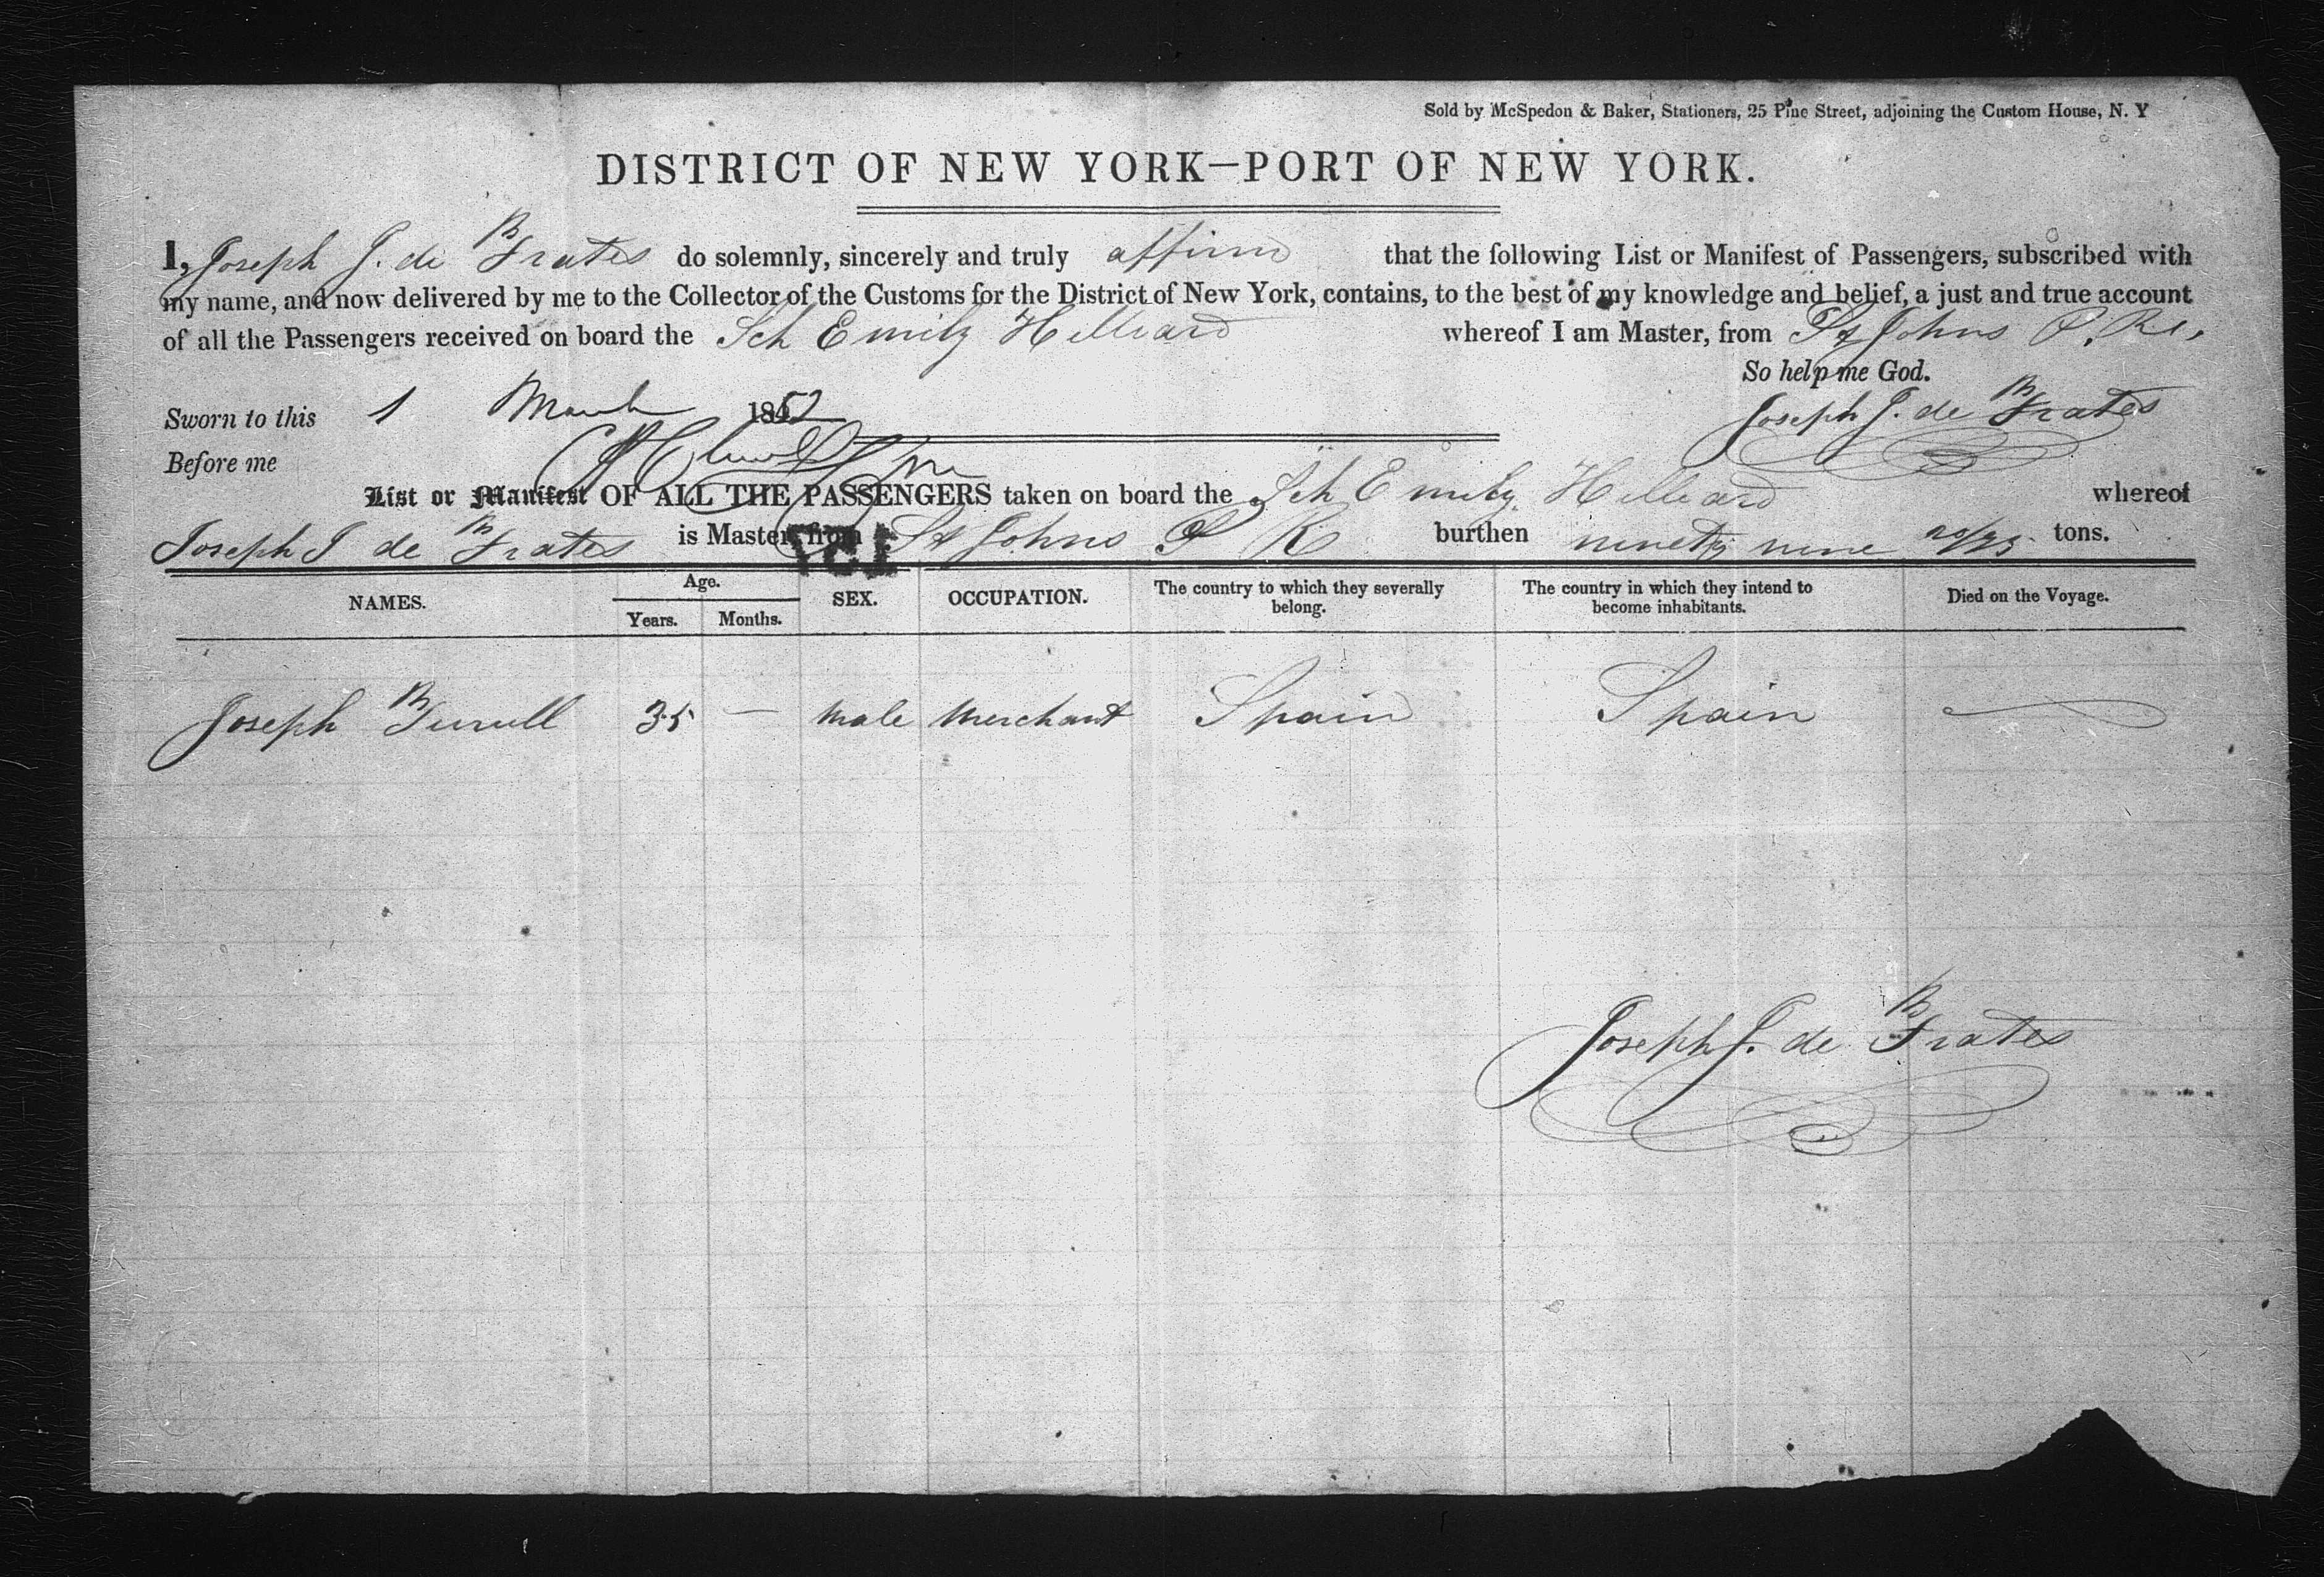 Sold by McSpedon & Baker, Stationers, 25 Pine Street, adjoining the Custom House, N. Y
DISTRICT OF NEW YORK—PORT OF NEW YORK.
I, Joseph J. de Frates do solemnly, sincerely and truly affirm that the following List or Manifest of Passengers, subscribed with
my name, and now delivered by me to the Collector of the Customs for the District of New York, contains, to the best of my knowledge and belief, a just and true account
of all the Passengers received on board the Sch Emily Hilliard whereof I am Master, from St Johns P. R.
So help me God.
Sworn to this 1 March 1852 Joseph J. de Frates
Before me
List or Manifest OF ALL THE PASSENGERS taken on board the Sch Emily Hilliard whereof
Joseph J de Frates is Master, from St Johns P R burthen ninety nine tons.
151
NAMES. Age. Years. Months. SEX. OCCUPATION. The country to which they severally belong. The country in which they intend to become inhabitants. Died on the Voyage.
Joseph 35 — male merchant Spain Spain
Joseph J. de Frates